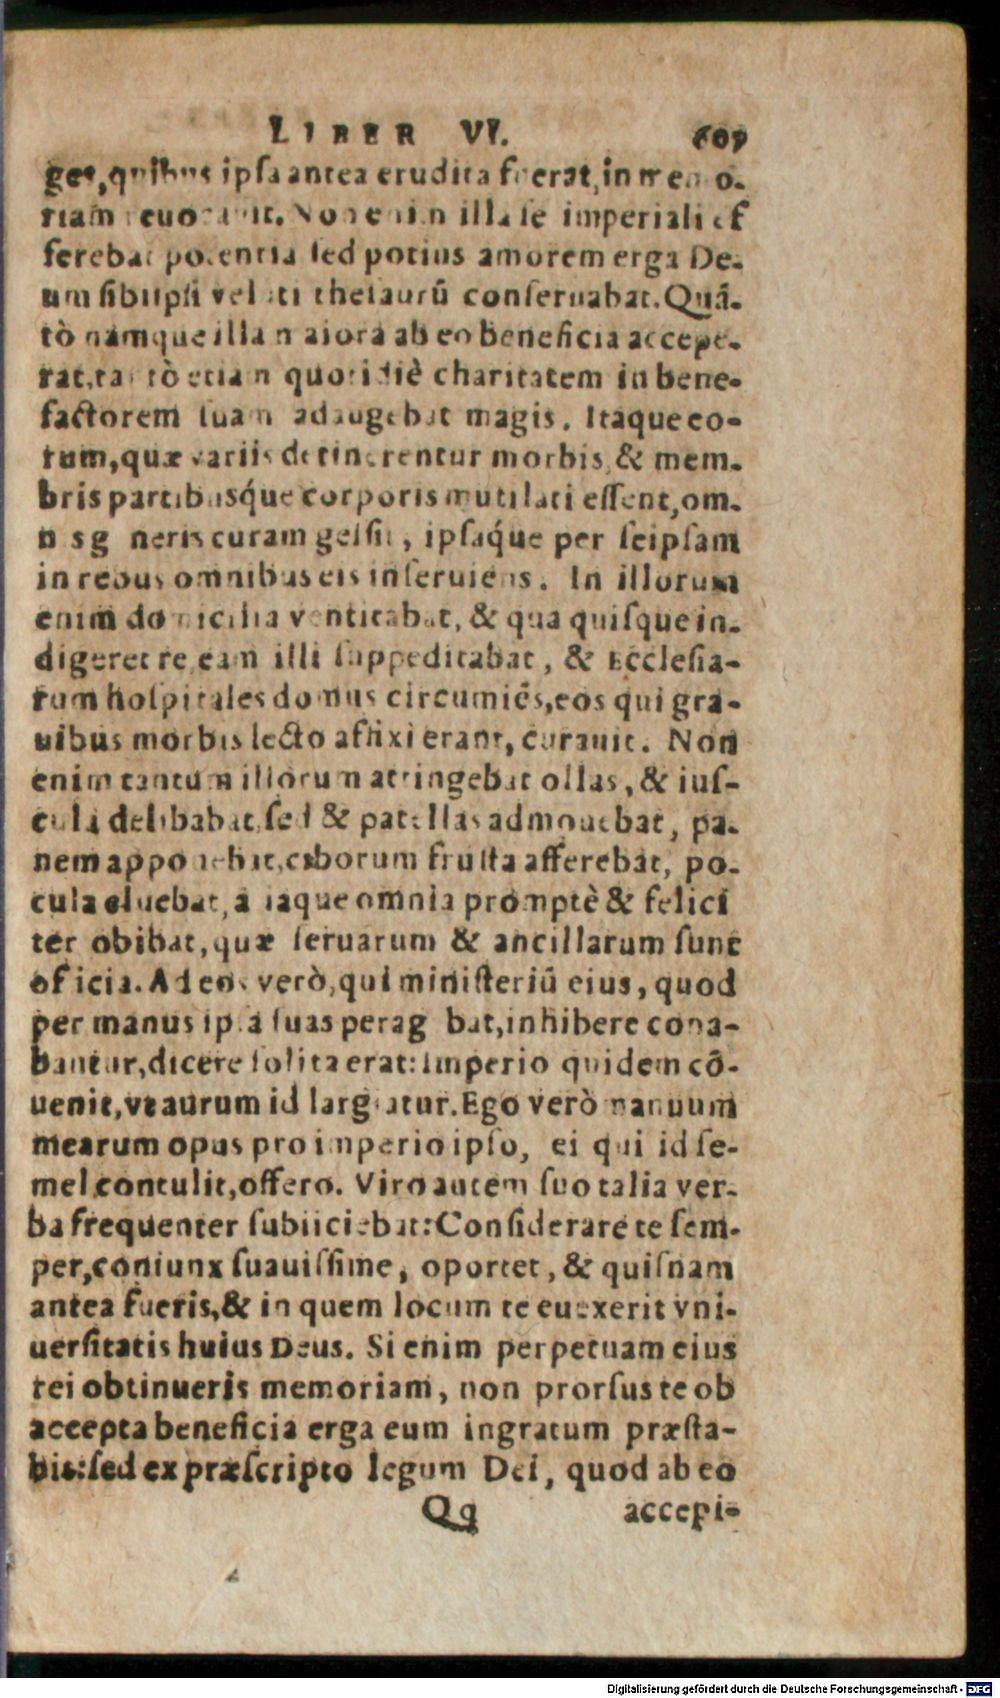 LIBER VI. 609
ges, quibus ipsa antea erudita fuerat, in memo-
riam reuocauit. Non enim illa se imperiali ef
ferebat potentia sed potius amorem erga De-
um sibiipsi veluti thesaurū conseruabat. Quā-
tò namque illa maiora ab eo beneficia accepe-
rat, tantò etiam quotidiè charitatem in bene-
factorem suam adaugebat magis. Itaque eo-
rum, quæ variis detinerentur morbis, & mem-
bris partibusq́ue corporis mutilati essent, om-
nisg neris curam gessit, ipsaq́ue per seipsam
in rebus omnibus eis inseruiens. In illorum
enim domicilia ventitabat, & qua quisque in-
digeret re, eam illi suppeditabat, & Ecclesia-
rum hospitales domus circumiēs, eos qui gra-
uibus morbis lecto affixi erant, curauit. Non
enim tantum illorum attingebat ollas, & ius-
cula delibabat, sed & patellas admouebat, pa-
nem apponebat, ciborum frusta afferebat, po-
cula eluebat, aliaque omnia promptè & felici
ter obibat, quæ seruarum & ancillarum sunt
officia. Ad eos verò, qui ministeriū eius, quod
per manus ipsa suas perag bat, inhibere cona-
bantur, dicere solita erat: Imperio quidem cō-
uenit, vt aurum id largiatur. Ego verò manuum
mearum opus pro imperio ipso, ei qui id se-
mel contulit, offero. Viro autem suo talia ver-
ba frequenter subiiciebat: Considerare te sem-
per, coniunx suauissime, oportet, & quisnam
antea fueris, & in quem locum te euexerit vni-
uersitatis huius Deus. Si enim perpetuam eius
rei obtinueris memoriam, non prorsus te ob
accepta beneficia erga eum ingratum præsta-
bis: sed ex præscripto legum Dei, quod ab eo
Qq accepi-
Digitalisierung gefördert durch die Deutsche Forschungsgemeinschaft - DFG